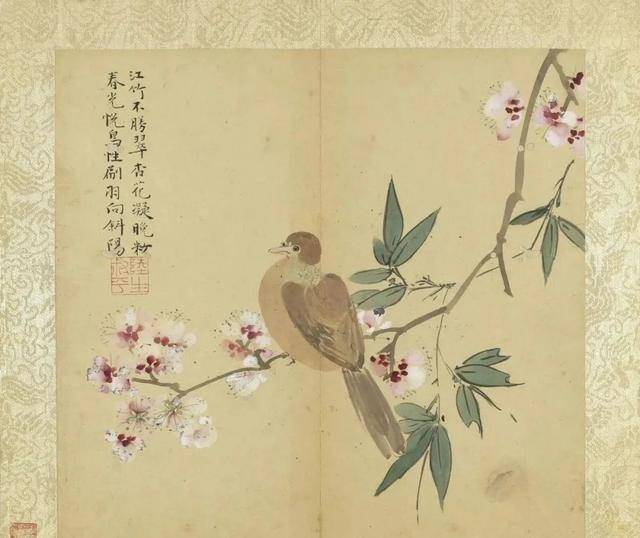 江竹不勝翠杏花凝晚粉
春光悦鳥性刷羽向斜陽